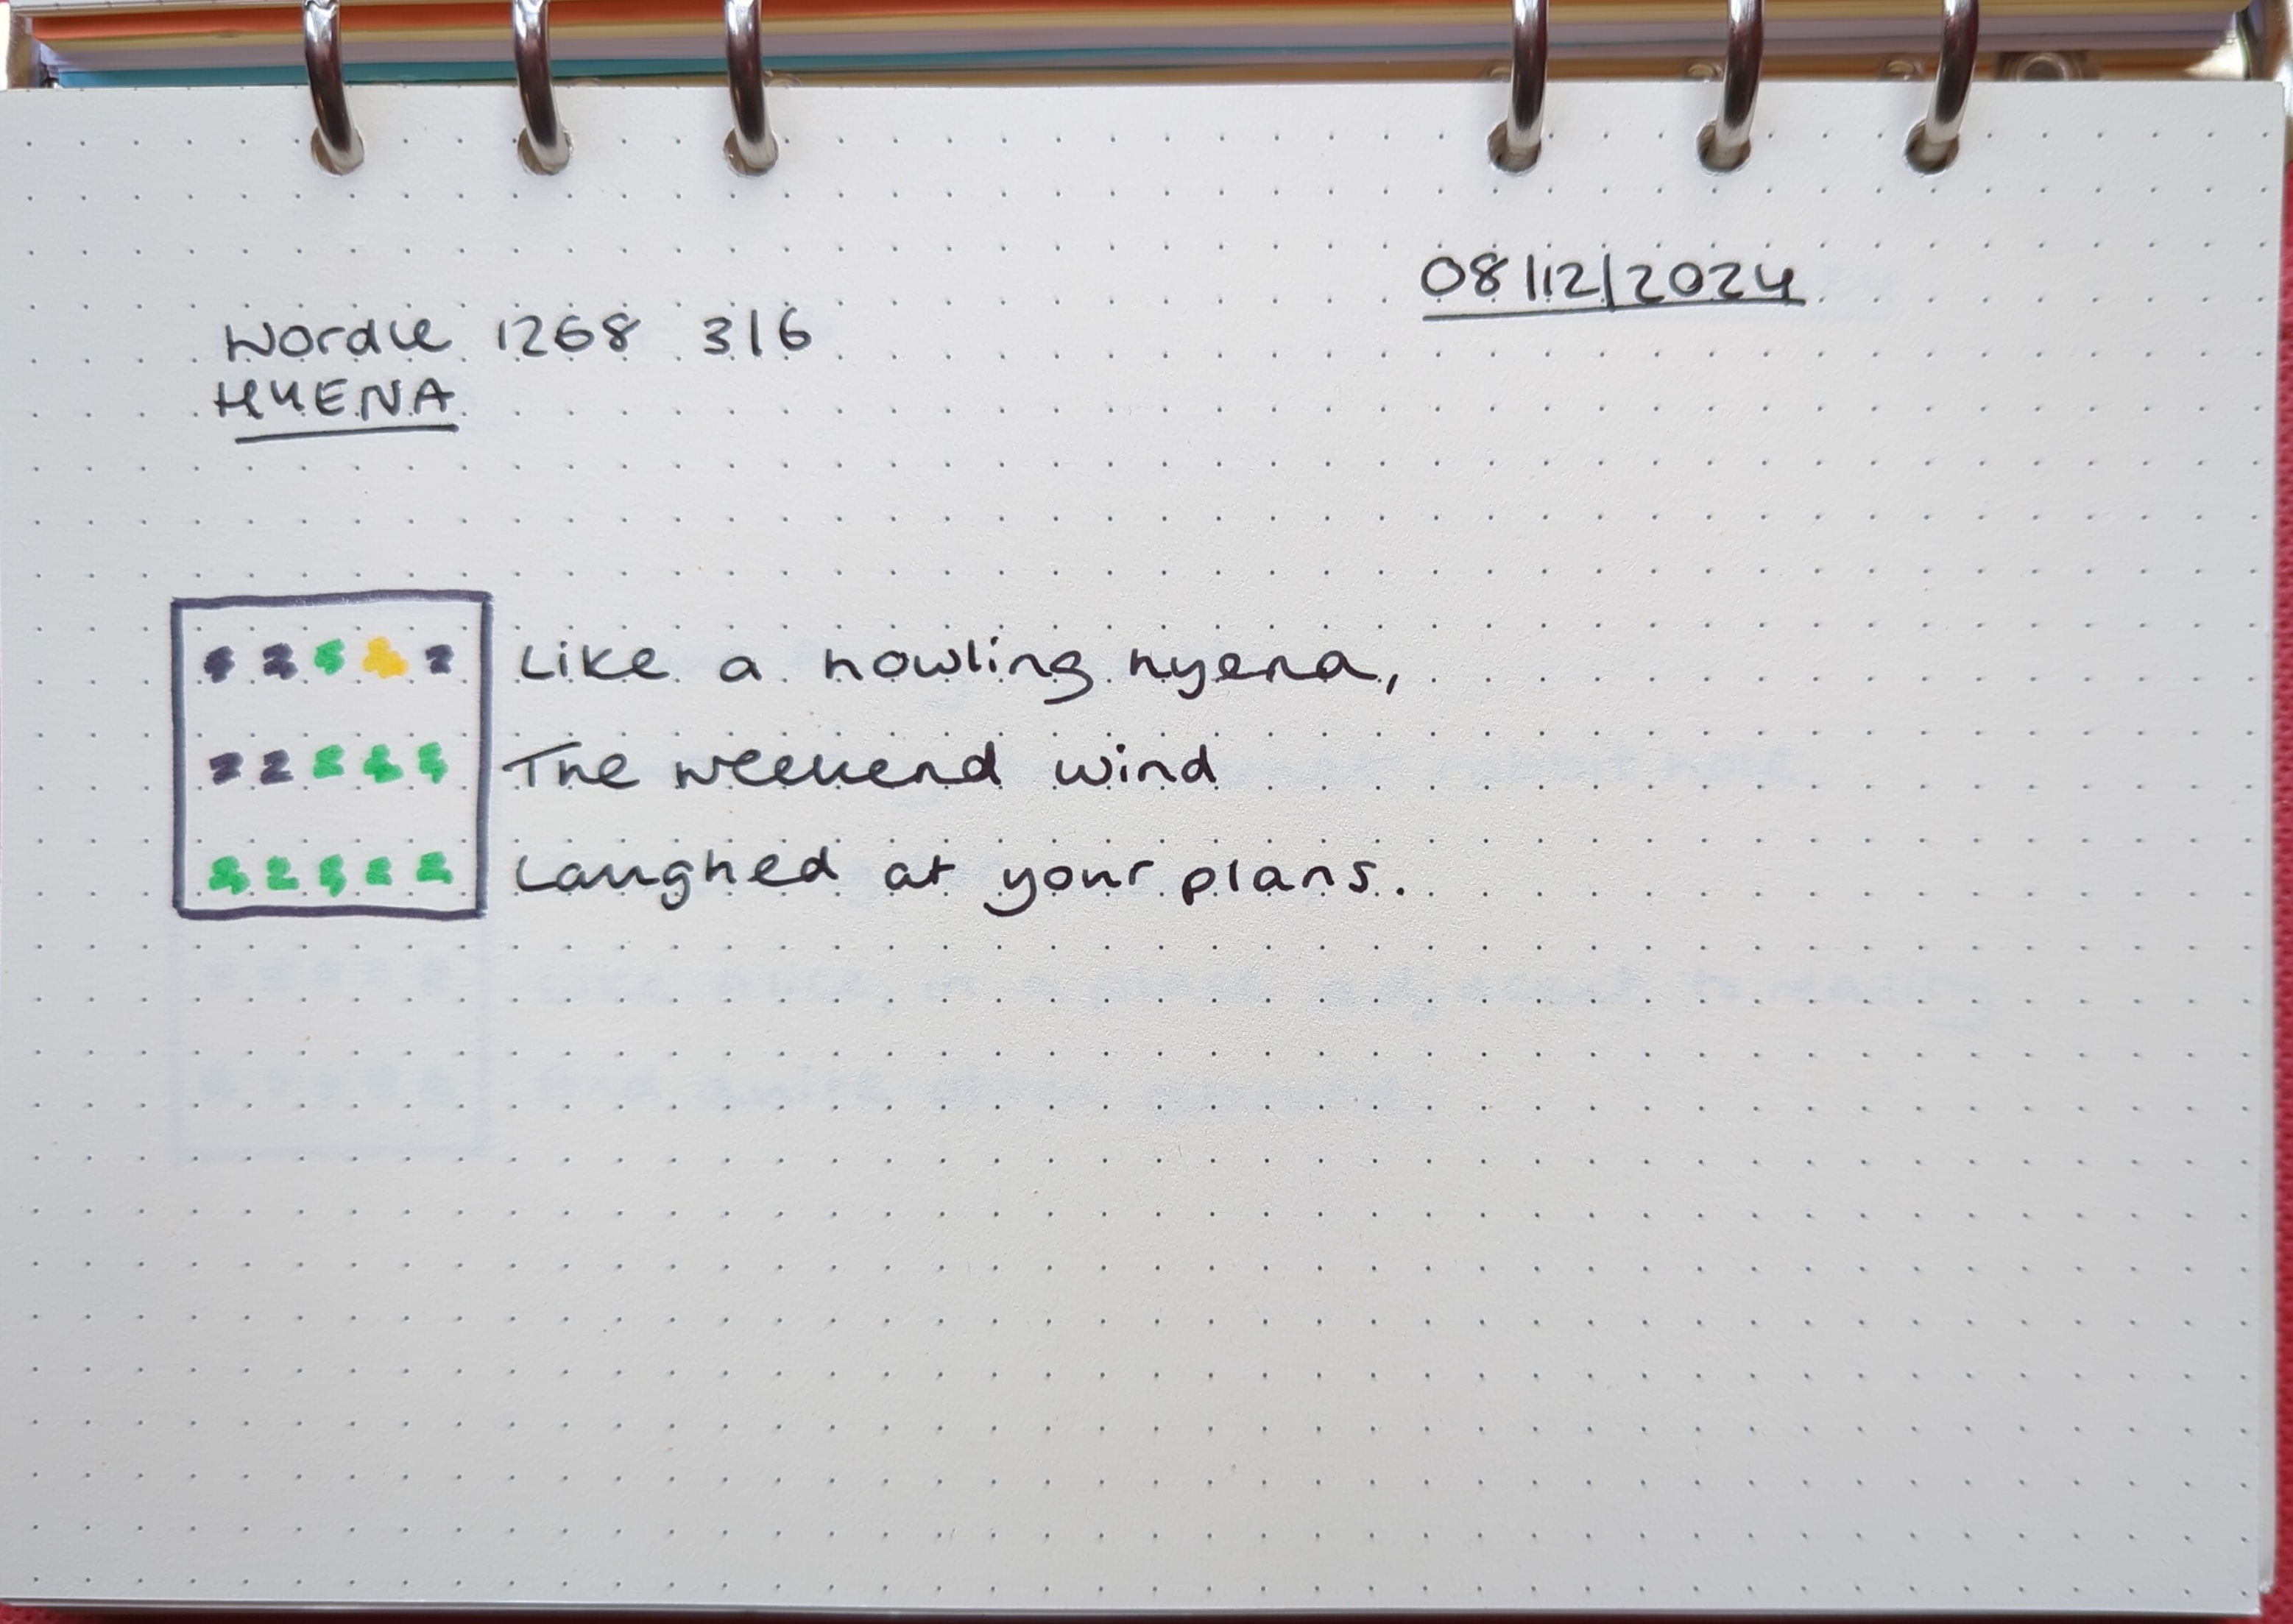 08/12/2024
Wordle 1268 3/6
HYENA
Like a howling hyena,
The weekend wind
Laughed at your plans.